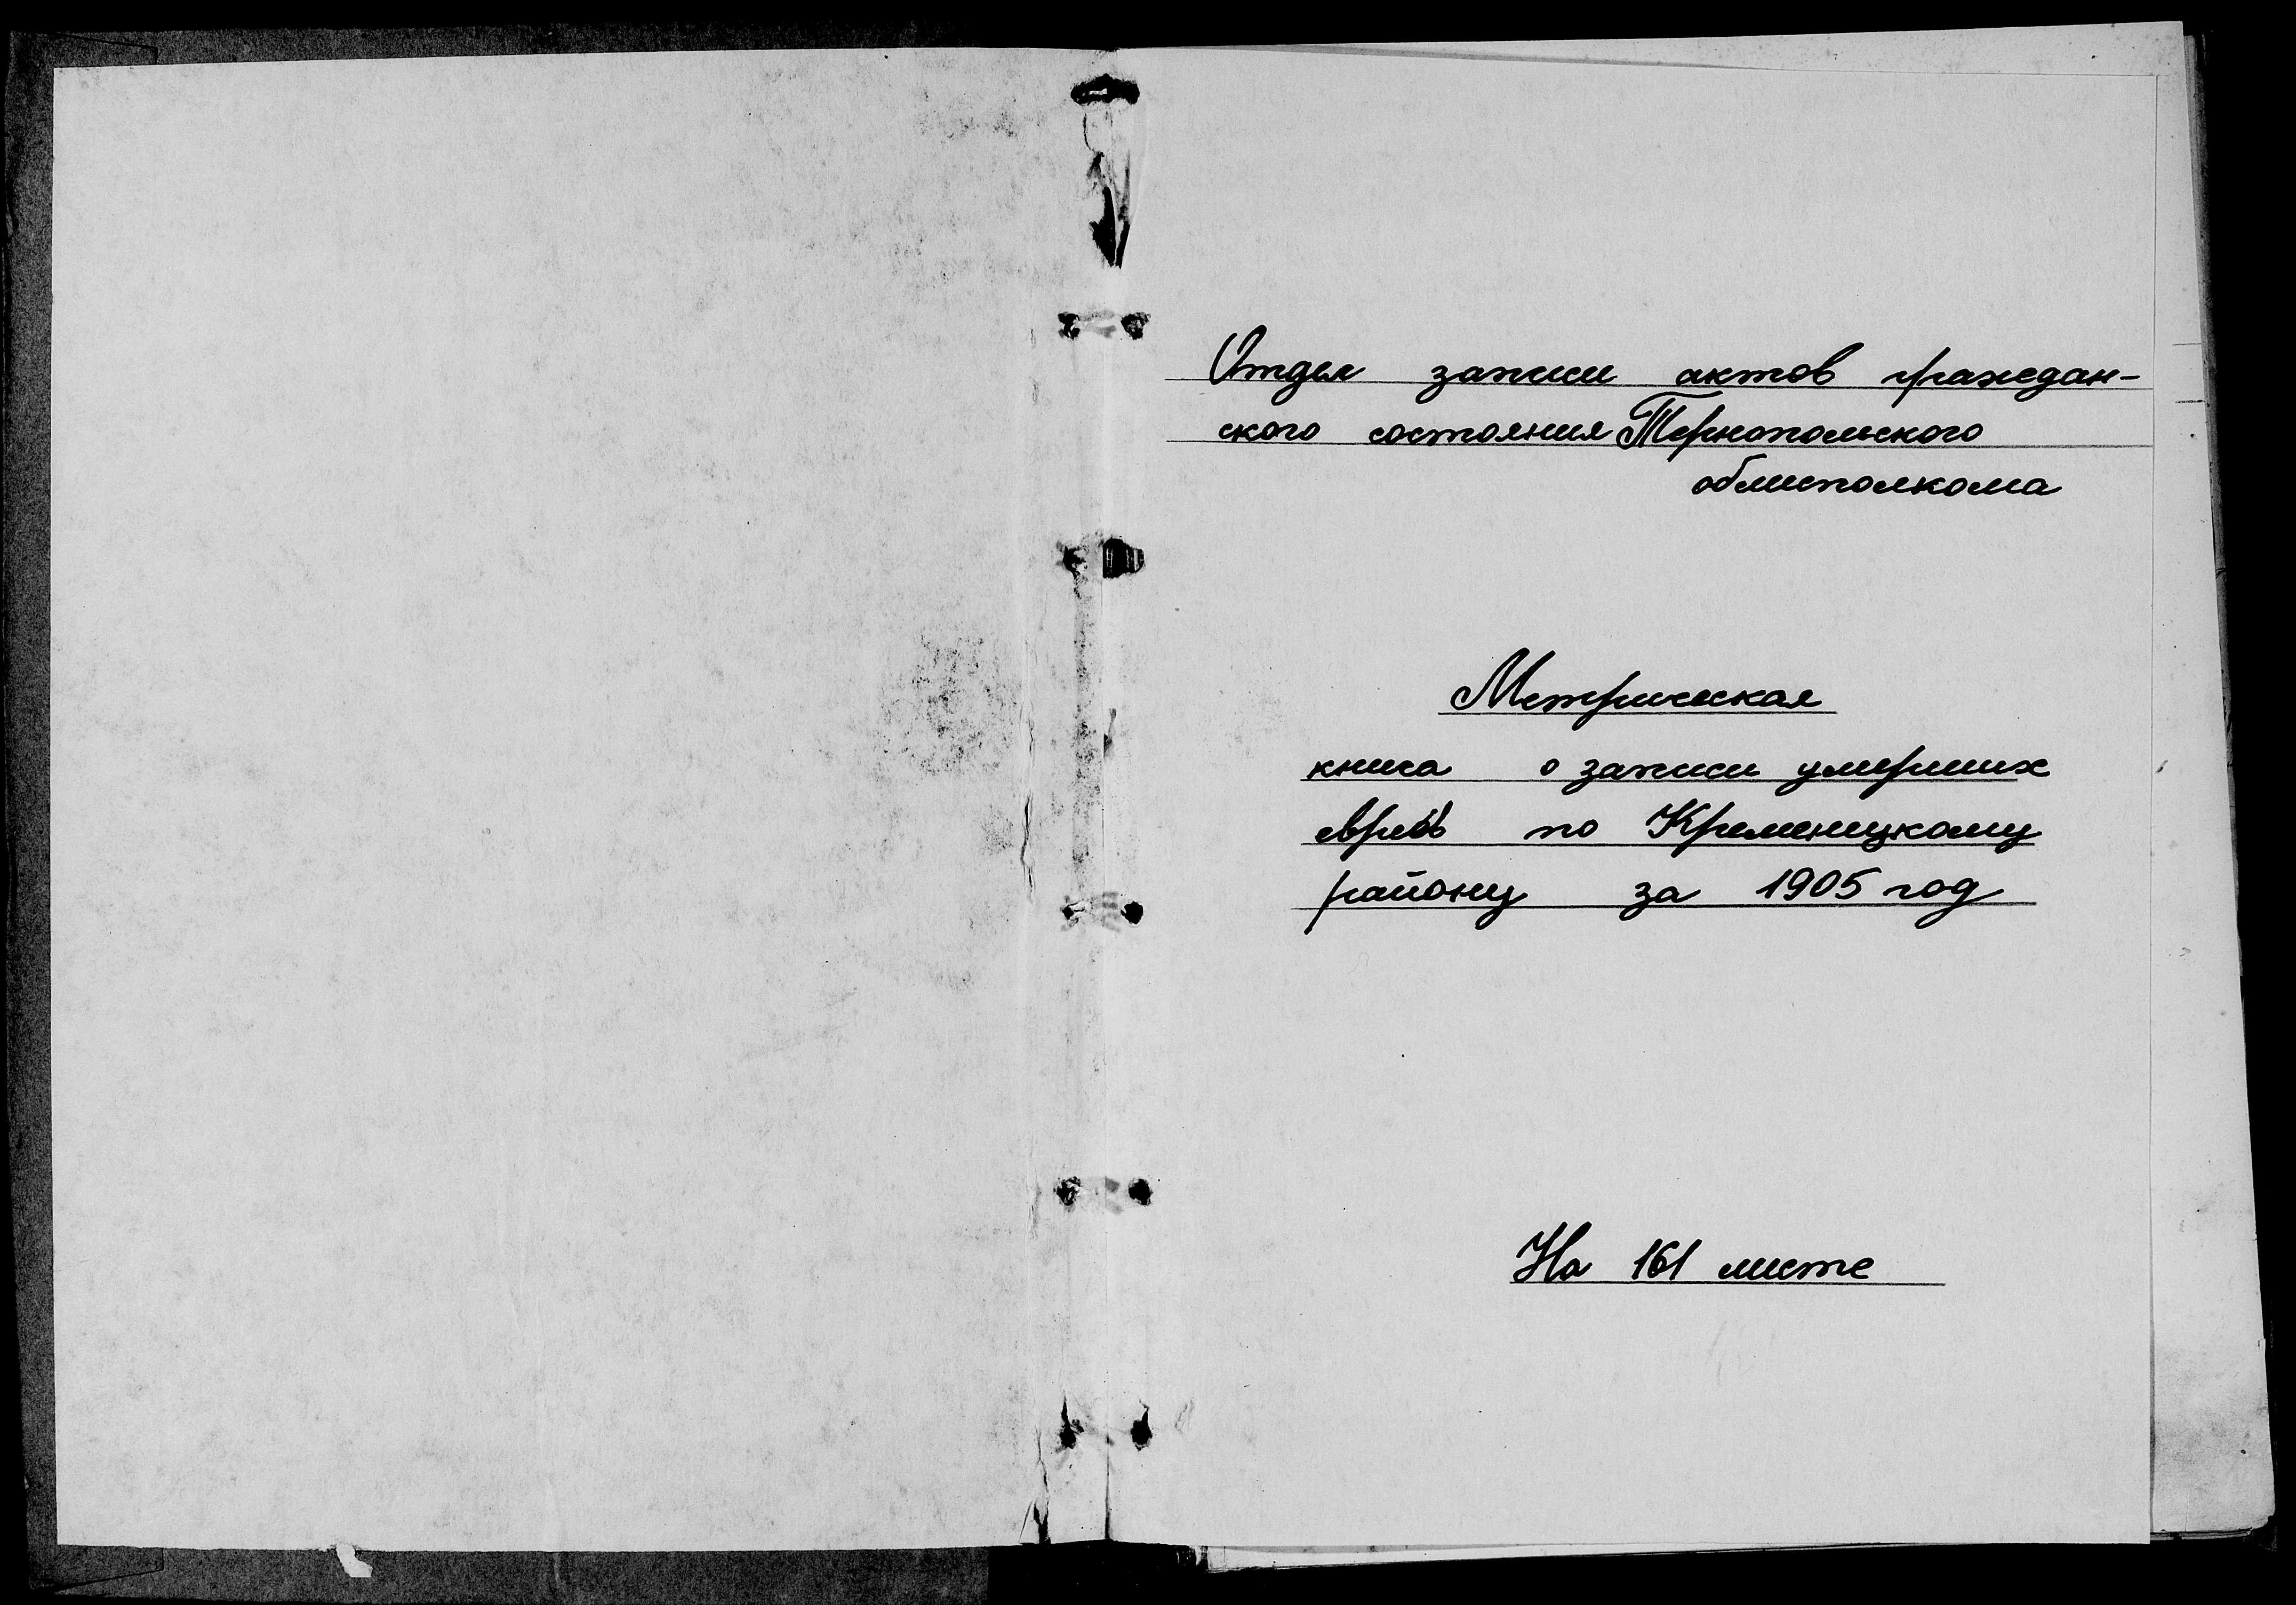 Отдел записи актов граждан-
ского состояния Тернопольского
облисполкома
Метрическая
книга о записи умерших
евреев по Кременецкому
району за 1905 год
На 161 листе